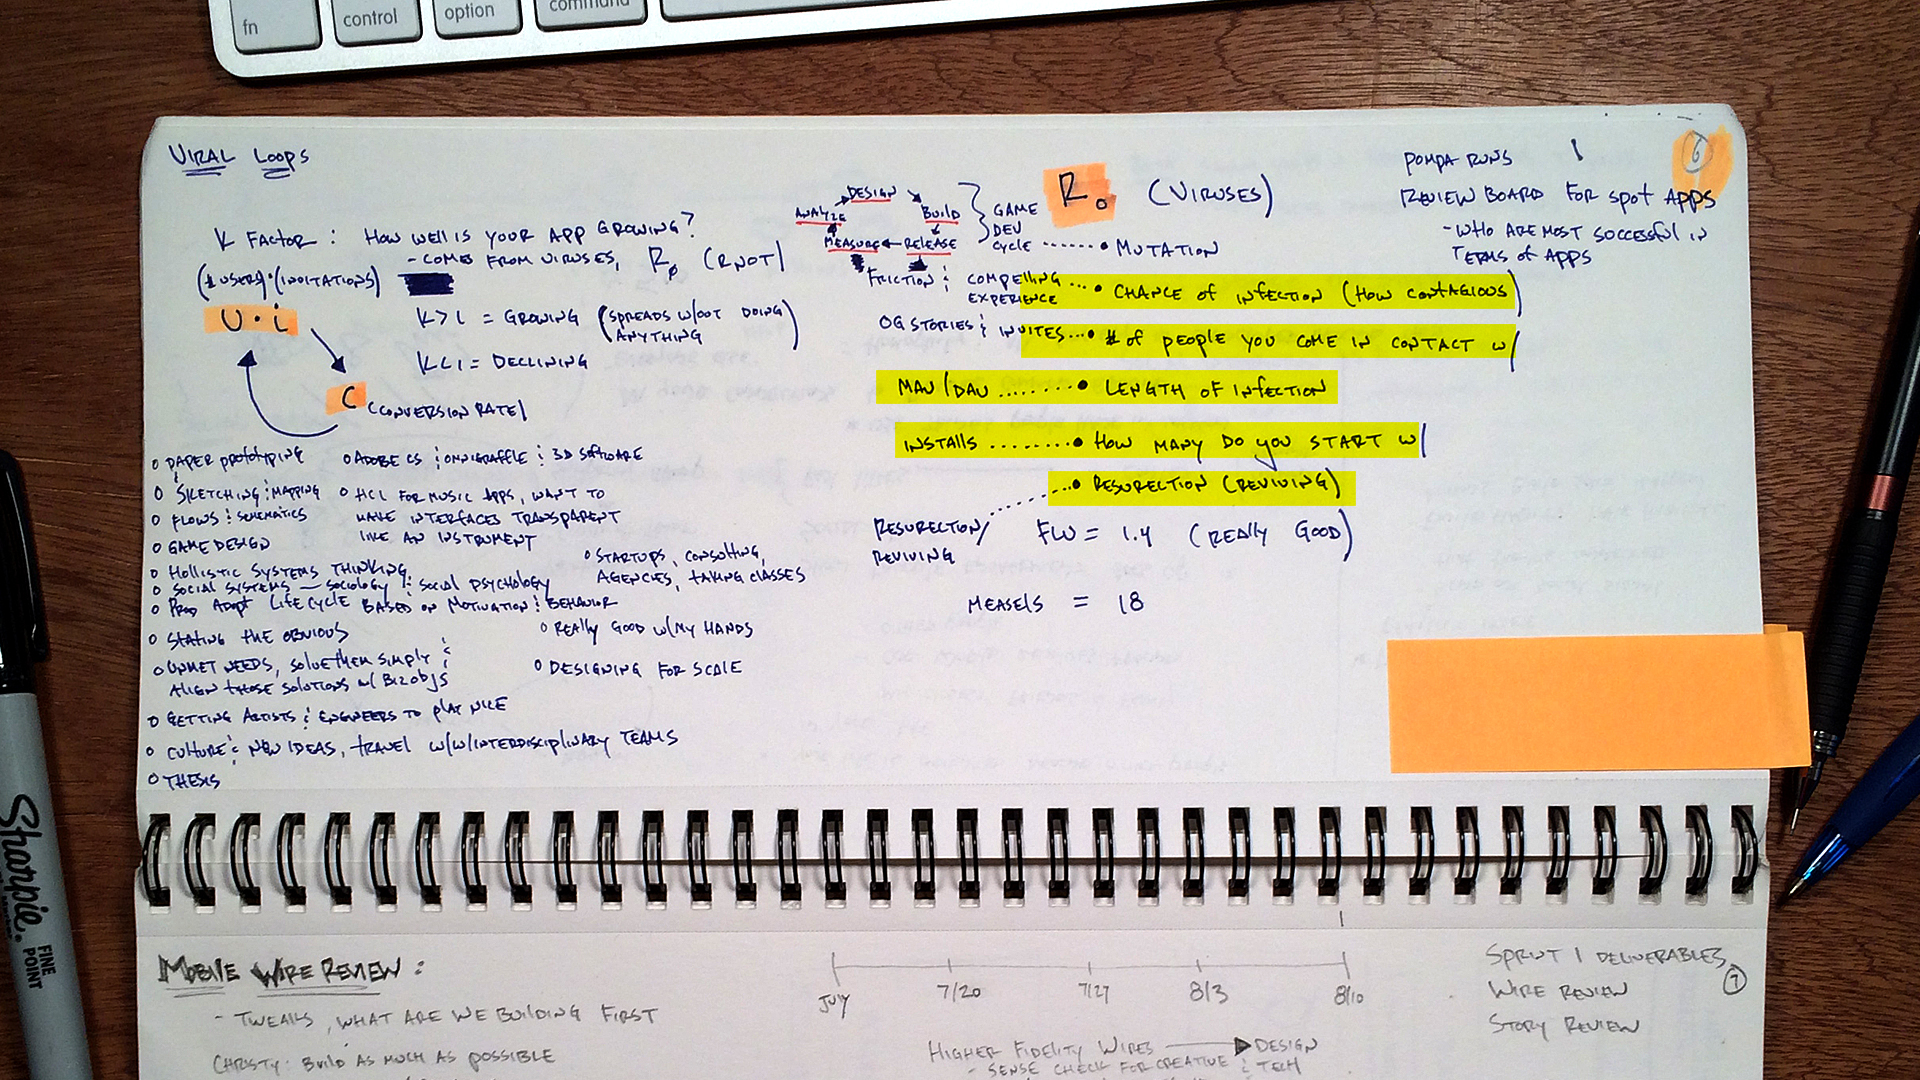 fn
control
option
command
VIRAL LOOPS
K FACTOR : HOW WELL IS YOUR APP GROWING?
- COMES FROM VIRUSES, Rø (RNOT)
(# USERS) · (INVITATIONS)
U · i
K>1 = GROWING (SPREADS W/OUT DOING ANYTHING)
K<1 = DECLINING
C (CONVERSION RATE)
o PAPER PROTOTYPING
o SKETCHING & MAPPING
o FLOWS & SCHEMATICS
o GAME DESIGN
o HOLLISTIC SYSTEMS THINKING
o SOCIAL SYSTEMS — SOCIOLOGY & SOCIAL PSYCHOLOGY
o PROD ADOPT LIFECYCLE BASED ON MOTIVATION & BEHAVIOR
o STATING THE OBVIOUS
o UNMET NEEDS, SOLVE THEM SIMPLY &
ALIGN THOSE SOLUTIONS W/ BIZ OBJS
o GETTING ARTISTS & ENGINEERS TO PLAY NICE
o CULTURE & NEW IDEAS, TRAVEL W/W/INTERDISCIPLINARY TEAMS
o THESIS
o ADOBE CS & OMNIGRAFFLE & 3D SOFTWARE
o HCI FOR MUSIC APPS, WANT TO
MAKE INTERFACES TRANSPARENT
LIKE AN INSTRUMENT
o STARTUPS, CONSULTING,
AGENCIES, TAKING CLASSES
o REALLY GOOD W/MY HANDS
o DESIGNING FOR SCALE
DESIGN
ANALYZE
BUILD
MEASURE
RELEASE
GAME
DEV
CYCLE
R₀ (VIRUSES)
• MUTATION
FRICTION & COMPELLING
EXPERIENCE • CHANCE OF INFECTION (HOW CONTAGIOUS)
OG STORIES & INVITES • # OF PEOPLE YOU COME IN CONTACT W/
MAU/DAU • LENGTH OF INFECTION
INSTALLS • HOW MANY DO YOU START W/
• RESURECTION (REVIVING)
RESURECTION/
REVIVING
FLU = 1.4 (REALLY GOOD)
MEASELS = 18
POMPA RUNS
REVIEW BOARD FOR SPOT APPS
- WHO ARE MOST SUCCESSFUL IN
TERMS OF APPS
6
Sharpie.
FINE
POINT
MOBILE WIRE REVIEW :
- TWEAKS, WHAT ARE WE BUILDING FIRST
CHRISTY: BUILD AS MUCH AS POSSIBLE
JULY
7/20
7/27
8/3
8/10
HIGHER FIDELITY WIRES DESIGN
- SENSE CHECK FOR CREATIVE & TECH
SPRINT 1 DELIVERABLES
WIRE REVIEW
STORY REVIEW
7